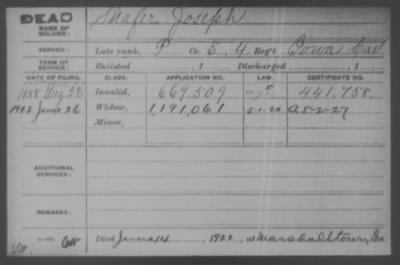 DEAD
NAME OF SOLDIER:
Shafer Joseph
SERVICE:
Late rank, P Co. E, 4 Reg't Iowa Cav
TERM OF SERVICE:
Enlisted , 1 Discharged , 1
DATE OF FILING. CLASS. APPLICATION NO. LAW. CERTIFICATE NO.
1888 Aug 22 Invalid, 669.509 441.758.
1922 June 26 Widow, 1,191,061 5-1-20 A5-2-27
Minor,
ADDITIONAL SERVICES:
REMARKS:
Died June 14, 1922, at Marshalltown, Ia